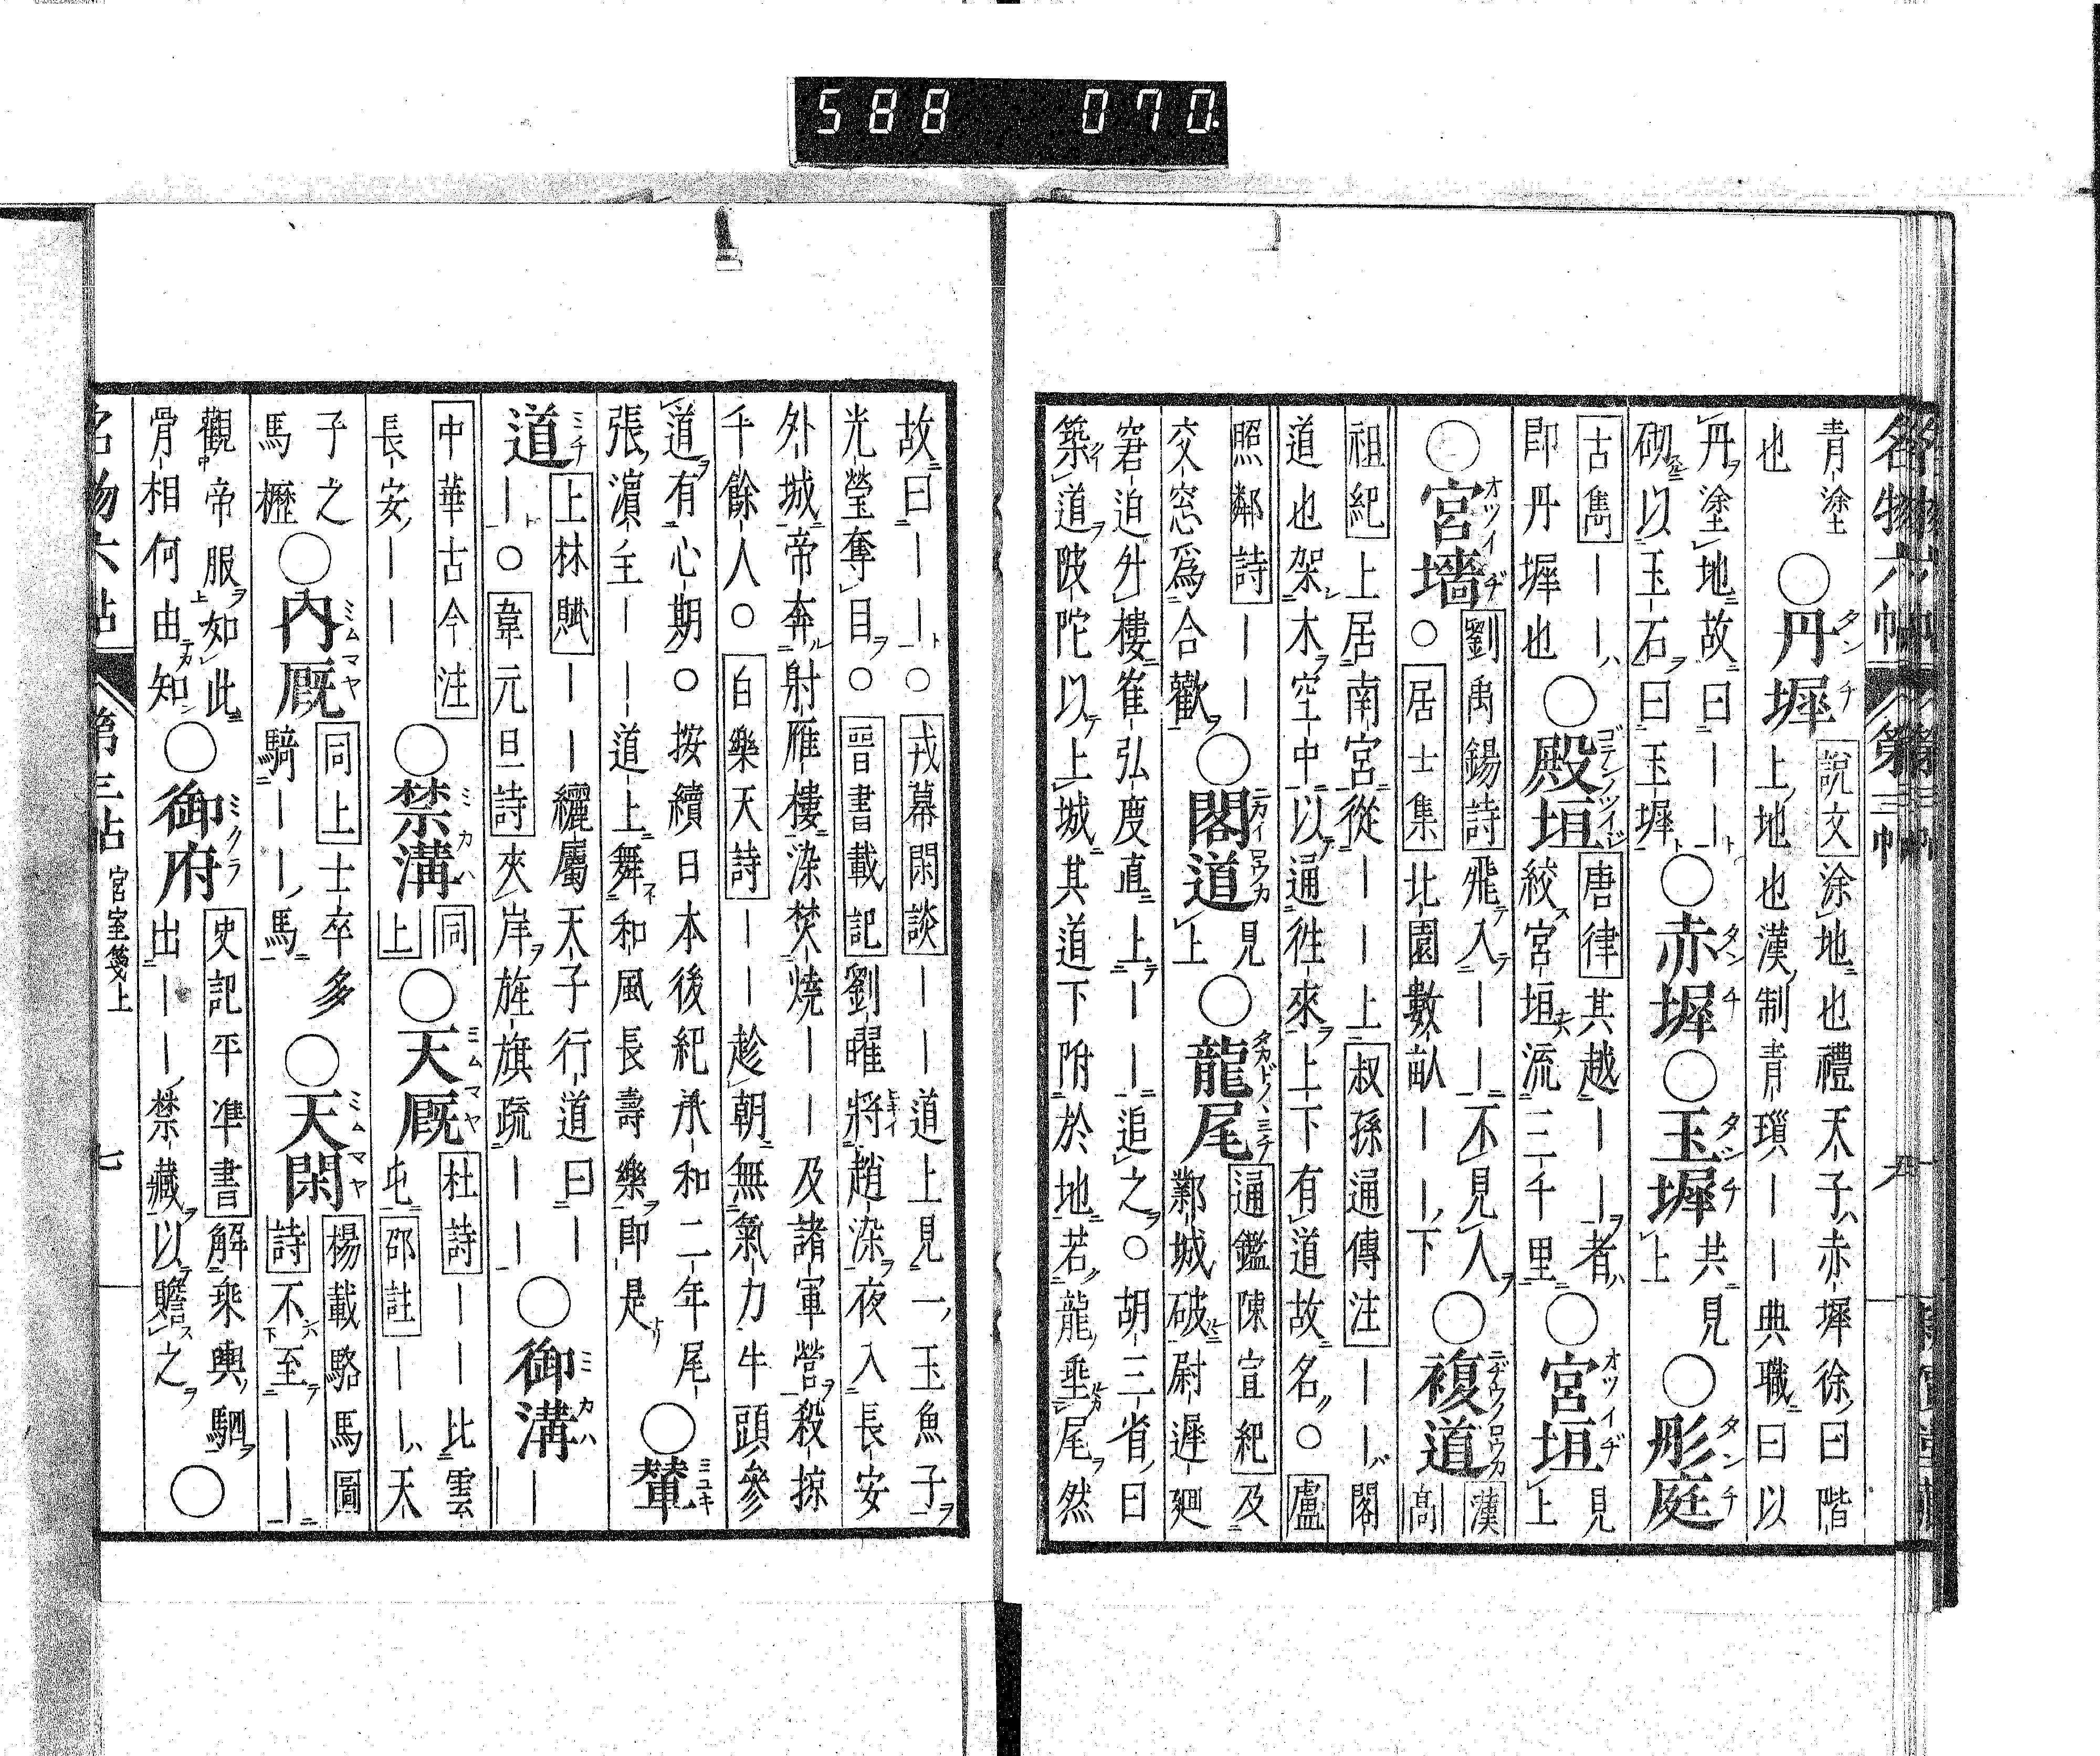 588 070.
名物六帖 第三帖
青塗
也
○丹墀
說文涂地也禮天子赤墀徐曰階
上地也漢制青瑣――典職曰以
丹塗地故曰――
砌以玉石曰玉墀
○赤墀○玉墀
共見
上
○彤庭
古雋――
即丹墀也
○殿垣
唐律其越――者
絞宮垣流三千里
○宮垣
見
上
○宮墻
劉禹錫詩飛入――不見人
○居士集北園數畝――下
○複道
漢
高
祖紀上居南宮從――上叔孫通傳注――閣
道也架木空中以通徃來上下有道故名○盧
照鄰詩――
交窓爲合歡
○閣道
見
上
○龍尾
通鑑陳宣紀及
鄴城破尉遲迥
窘迫升樓崔弘度直上――追之○胡三省曰
築道陂陀以上城其道下附於地若龍垂尾然
故曰――○戎幕閑談――道上見一玉魚子
光瑩奪目○晉書載記劉曜將趙染夜入長安
外城帝奔射雁樓染焚燒――及諸軍營殺掠
千餘人○白樂天詩――趁朝無氣力牛頭參
道有心期○按續日本後紀承和二年尾
張濱主――道上舞和風長壽樂即是
○輦
道
上林賦――纚屬天子行道曰―
―○韋元旦詩夾岸旌旗疏――
○御溝
―
中華古今注
長安――
○禁溝
同
上
○天厩
杜詩――比雲
屯邵註――天
子之
馬櫪
○內厩
同上士卒多
騎――馬
○天閑
楊載駱馬圖
詩不至――
觀帝服如此
骨相何由知
○御府
史記平準書解乘輿駟
出――禁藏以贍之
○
名物六帖 第三帖 宮室箋上 七